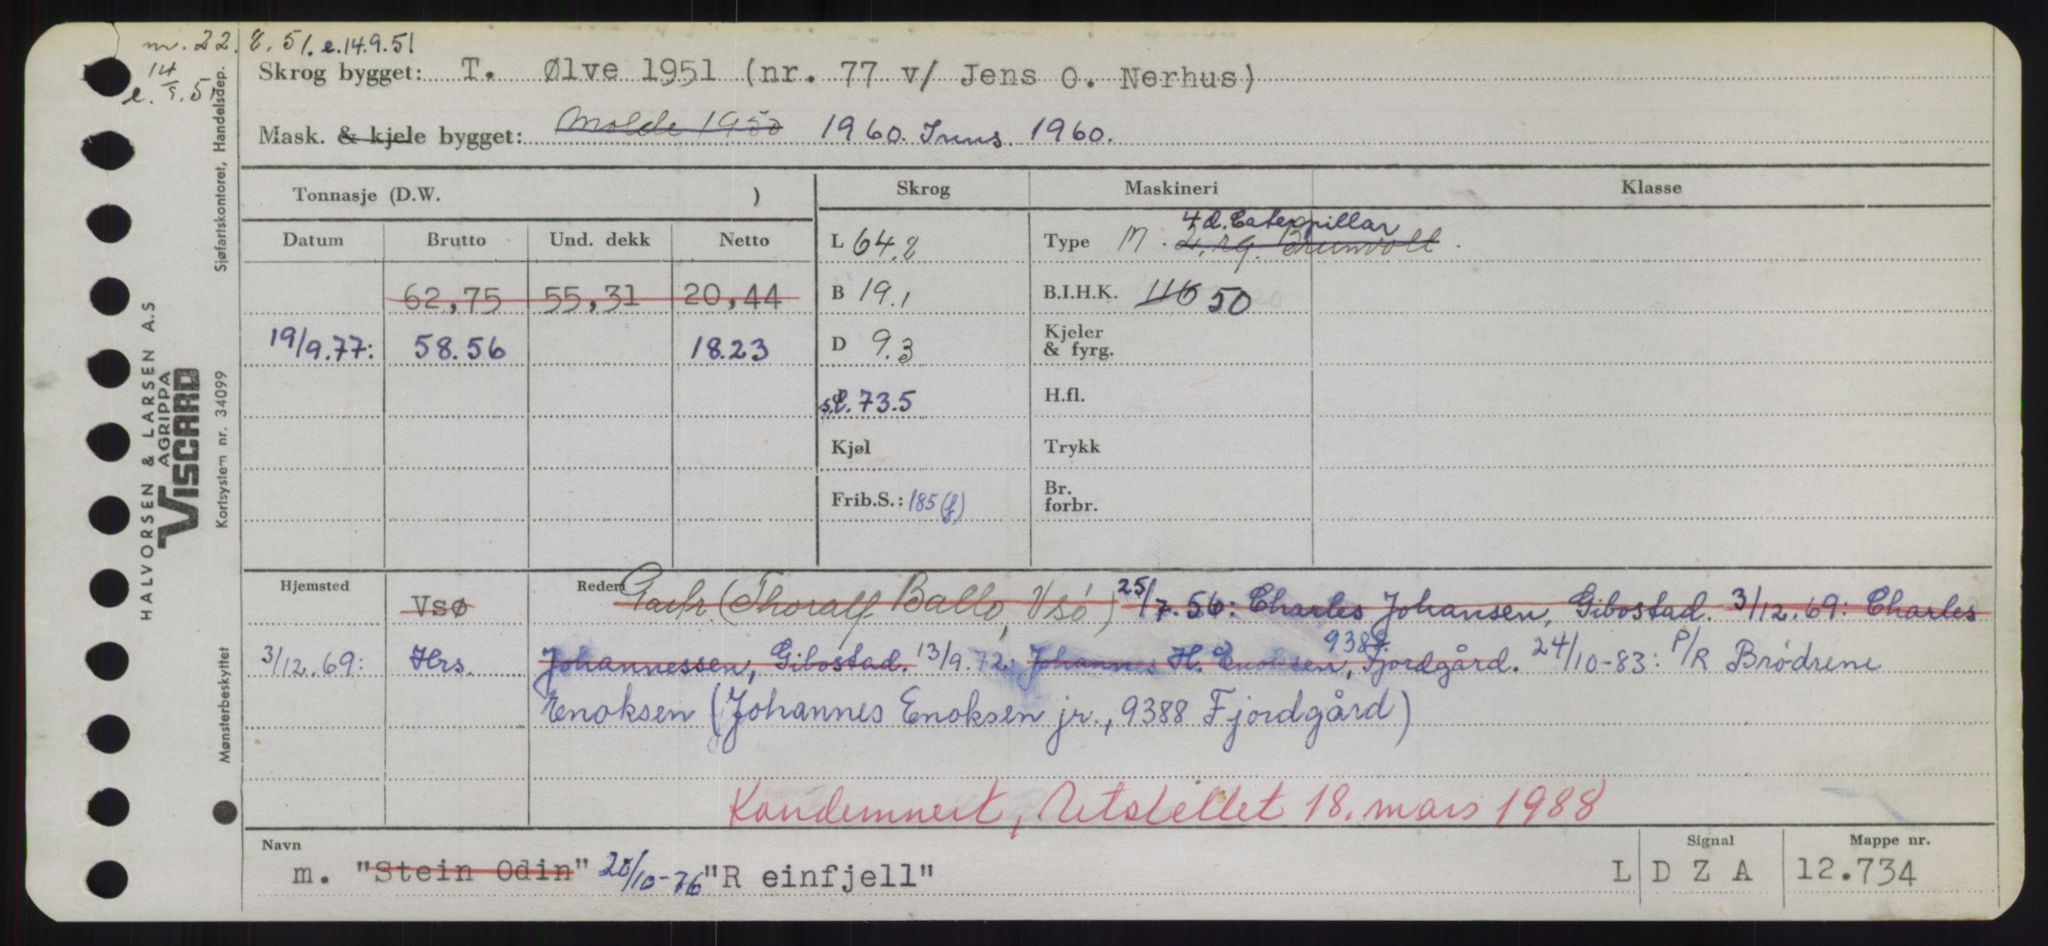 m. 22. 8. 51. e. 14.9.51
e. 14/9. 51
Skrog bygget: T. Ølve 1951 (nr. 77 v/ Jens O. Nerhus)
Mask. & kjele bygget: Molde 1950 1960. Inns. 1960.
Tonnasje (D.W. ) Skrog Maskineri Klasse
Datum Brutto Und. dekk Netto
L 64.2 Type M. 4 d. Caterpillar Brunvoll.
62,75 55,31 20,44 B 19.1 B.I.H.K. 116 50
19/9.77: 58.56 18.23 D 9.3 Kjeler & fyrg.
s.l. 73.5 H.fl.
Kjøl Trykk
Frib.S.: 185 (f) Br. forbr.
Hjemsted Vsø Rederi Partr. (Thoralf Ballo, Vsø) 25/7.56: Charles Johansen, Gibostad. 3/12.69: Charles
3/12.69: Hrs. Johannessen, Gibostad. 13/9.72: Johannes H. Enoksen, 9388 Fjordgård. 24/10-83: P/R Brødrene
Enoksen (Johannes Enoksen jr., 9388 Fjordgård)
Kondemnert, Utslettet 18. mars 1988
Navn Signal Mappe nr.
m. "Stein Odin" 20/10-76 "R einfjell" L D Z A 12.734
HALVORSEN & LARSEN A.S
AGRIPPA
VISCARD
Sjøfartskontoret, Handelsdep.
Kortsystem nr. 34099
Mønsterbeskyttet